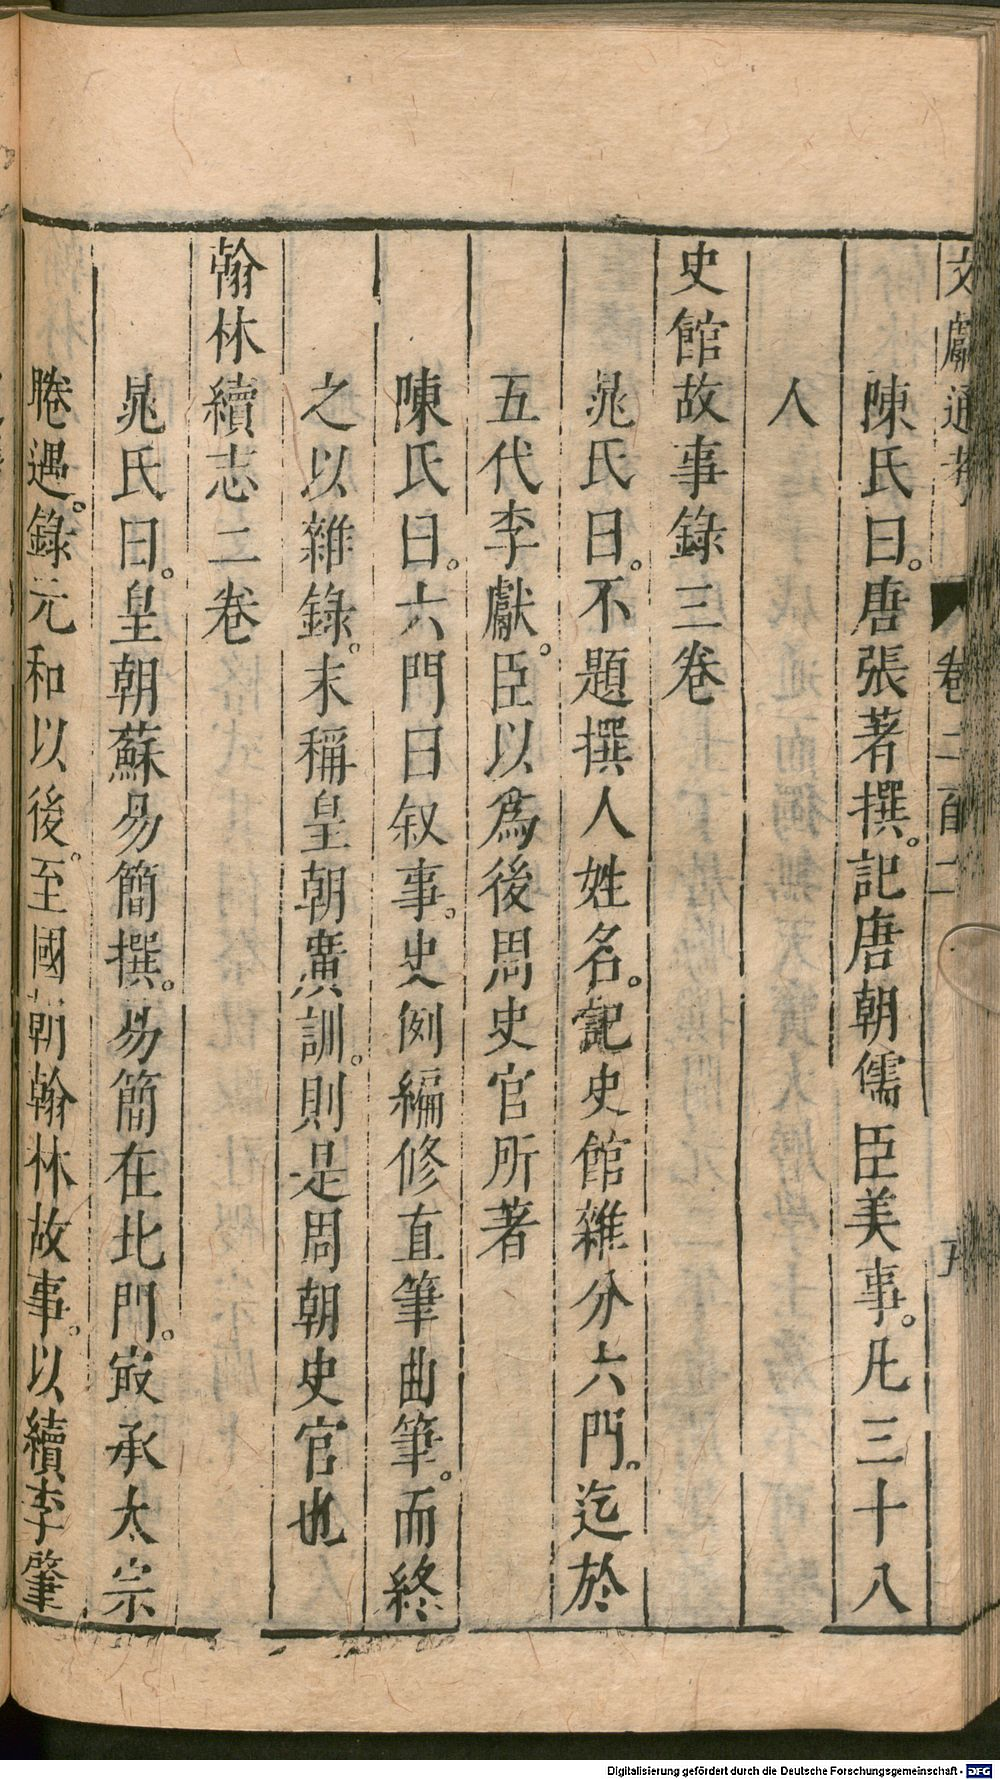 文獻通考 卷二百二
陳氏曰。唐張著撰。記唐朝儒臣美事。凡三十八
人
史館故事錄三卷
晁氏曰。不題撰人姓名。記史館雜分六門。迄於
五代李獻。臣以為後周史官所著
陳氏曰。六門曰叙事。史例編修直筆曲筆。而終
之以雜錄。末稱皇朝廣訓。則是周朝史官也
翰林續志二卷
晁氏曰。皇朝蘇易簡撰。易簡在北門。㝡承太宗
睠遇。錄元和以後。至國朝翰林故事。以續李肇
Digitalisierung gefördert durch die Deutsche Forschungsgemeinschaft - DFG